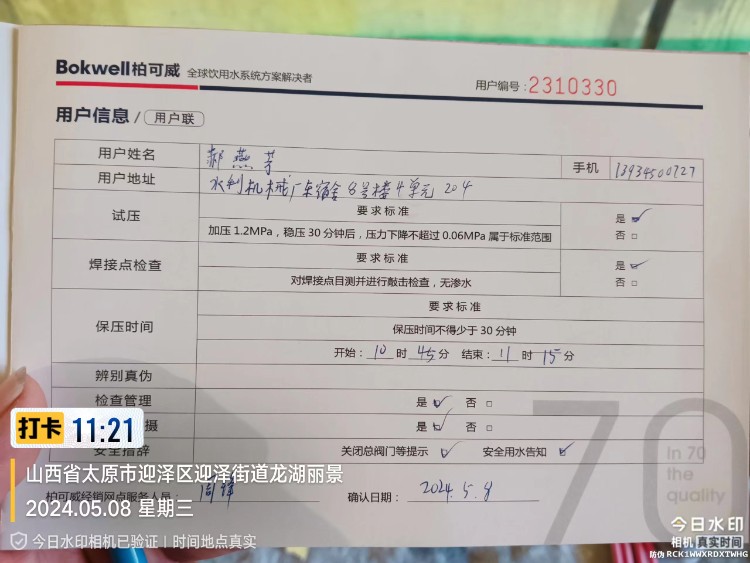 Bokwell柏可威 全球饮用水系统方案解决者
用户编号:2310330
用户信息 / 用户联
用户姓名 郝燕芳 手机 13934500727
用户地址 水利机械厂东宿舍8号楼4单元204
试压 要求标准 是 ✓
加压1.2MPa,稳压30分钟后,压力下降不超过0.06MPa属于标准范围 否 □
焊接点检查 要求标准 是 ✓
对焊接点目测并进行敲击检查,无渗水 否 □
保压时间 要求标准
保压时间不得少于30分钟
开始:10时45分 结束:11时15分
辨别真伪
检查管理 是 ✓ 否 □
摄 是 ✓ 否 □
安全措辞 关闭总阀门等提示 ✓ 安全用水告知 ✓
柏可威经销网点服务人员: 确认日期:2024.5.8
70
In 70
the
quality
打卡 11:21
山西省太原市迎泽区迎泽街道龙湖丽景
2024.05.08 星期三
今日水印相机已验证 | 时间地点真实
今日水印
相机 真实时间
防伪 RCK1WWXRDXTWHG